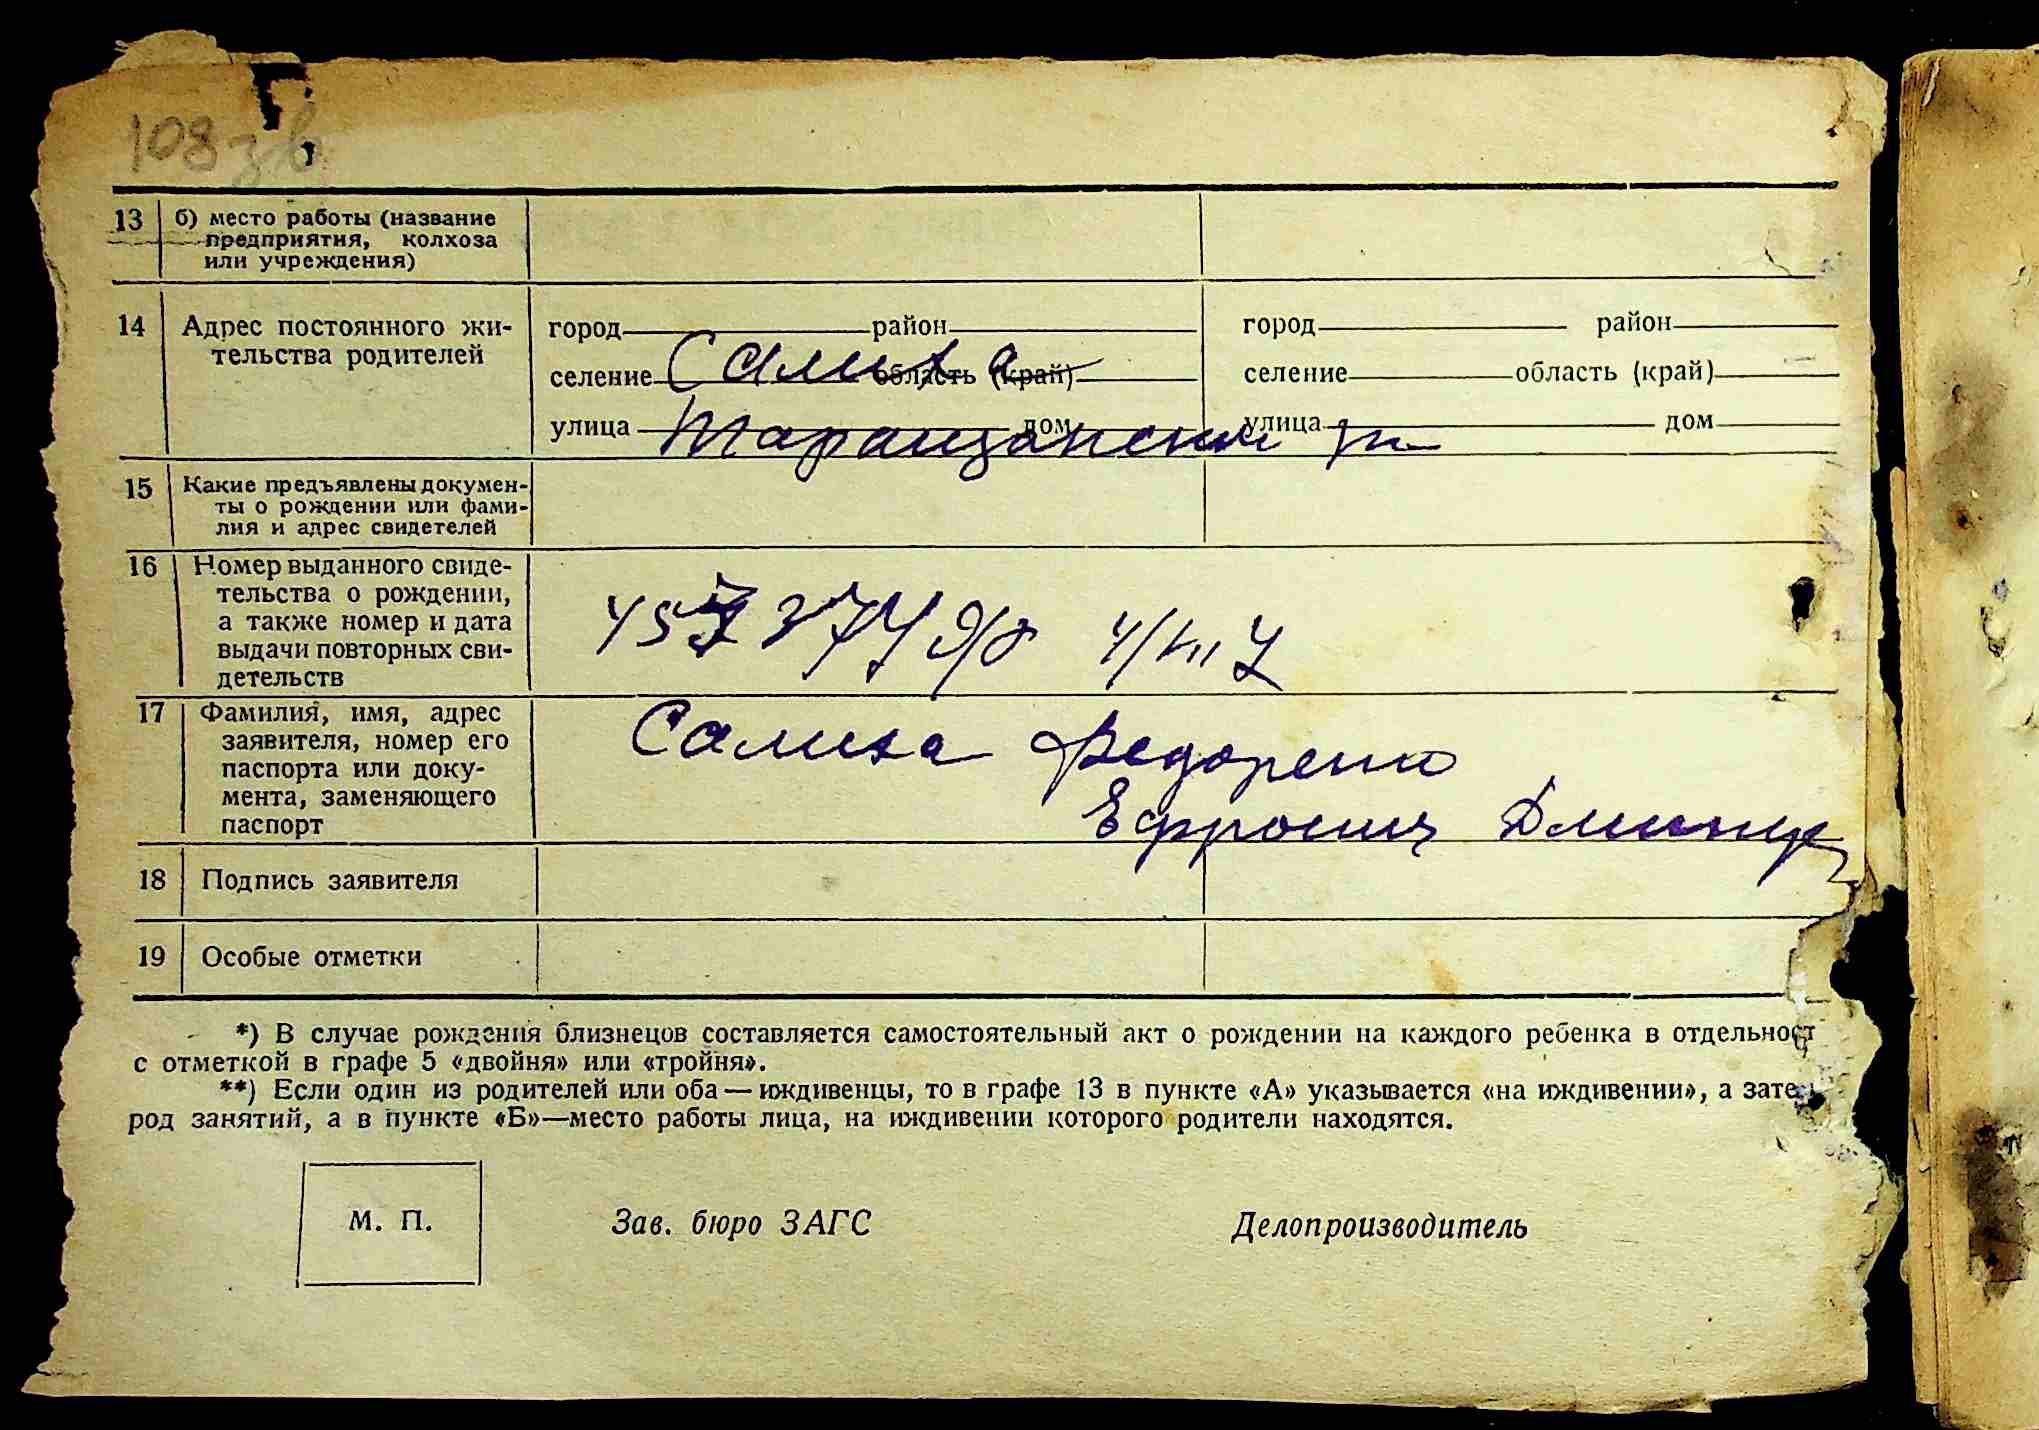 108 зв
13 б) место работы (название
предприятия, колхоза
или учреждения)
14 Адрес постоянного жи-
тельства родителей
город район город район
селение Салиха область (край) селение область (край)
улица дом улица дом
Таращанский рн
15 Какие предъявлены докумен-
ты о рождении или фами-
лия и адрес свидетелей
16 Номер выданного свиде-
тельства о рождении,
а также номер и дата
выдачи повторных сви-
детельств
17 Фамилия, имя, адрес
заявителя, номер его
паспорта или доку-
мента, заменяющего
паспорт
Салиха Федоренко
Ефросин
18 Подпись заявителя
19 Особые отметки
*) В случае рождения близнецов составляется самостоятельный акт о рождении на каждого ребенка в отдельност
с отметкой в графе 5 «двойня» или «тройня».
**) Если один из родителей или оба — иждивенцы, то в графе 13 в пункте «А» указывается «на иждивении», а зате
род занятий, а в пункте «Б»—место работы лица, на иждивении которого родители находятся.
М. П. Зав. бюро ЗАГС Делопроизводитель